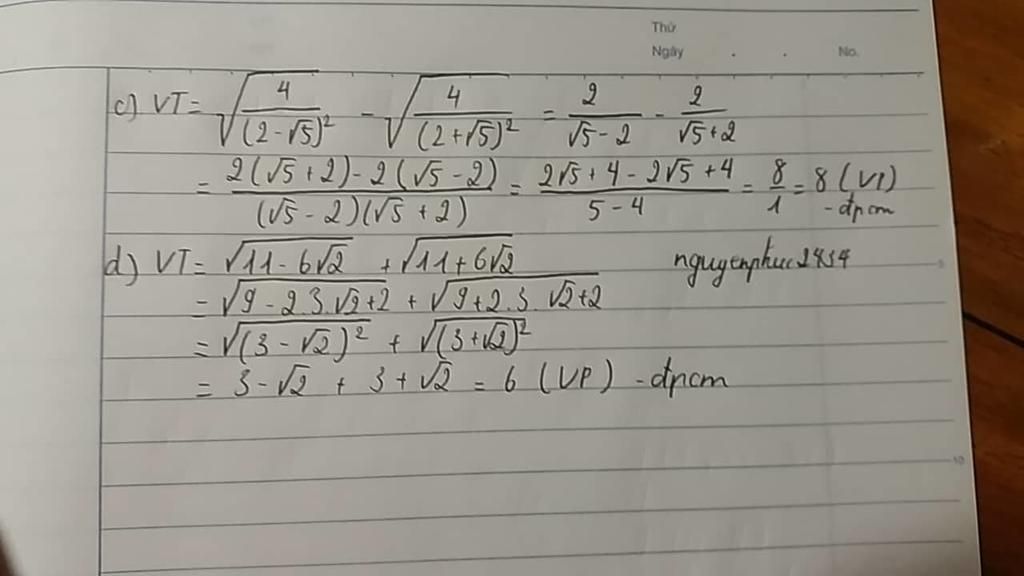 Thứ
Ngày . . No.
c) VT = √(4/(2 - √5)²) - √(4/(2 + √5)²) = 2/(√5 - 2) - 2/(√5 + 2)
= (2(√5 + 2) - 2(√5 - 2))/((√5 - 2)(√5 + 2)) = (2√5 + 4 - 2√5 + 4)/(5 - 4) = 8/1 = 8 (VP)
- đpcm
d) VT = √(11 - 6√2) + √(11 + 6√2) nguyenphuc2434
= √(9 - 2.3.√2 + 2) + √(9 + 2.3.√2 + 2)
= √((3 - √2)²) + √((3 + √2)²)
= 3 - √2 + 3 + √2 = 6 (VP) - đpcm
10